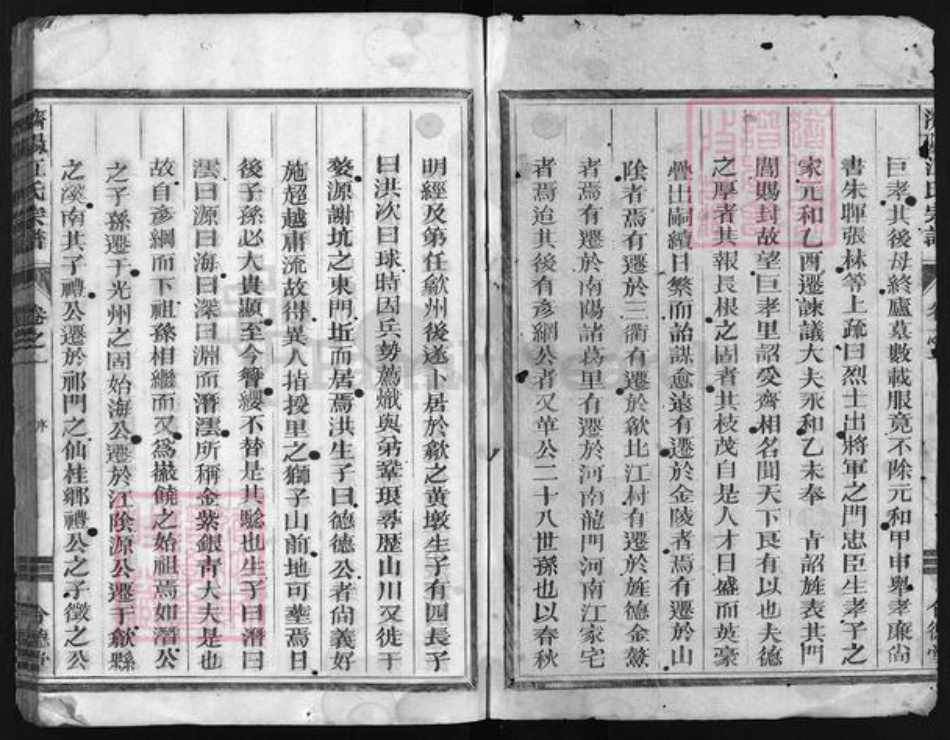 巨孝其後母終廬墓數載服竟不除元和甲申舉孝廉尚
書朱暉張林等上疏曰烈士出將軍之門忠臣生孝子之
家元和乙酉遷諫議大夫永和乙未奉 旨詔旌表其門
閭賜封故望巨孝里詔受齊相名聞天下良有以也夫德
之厚者其報長根之固者其枝茂自是人才日盛而英豪
疊出嗣續日繁而詒謀愈遠有遷於金陵者焉有遷於山
陰者焉有遷於三衢有遷於歙北江村有遷於旌德金鰲
者焉有遷於南陽諸葛里有遷於河南龍門河南江家宅
者焉迨其後有彥綱公者又革公二十八世孫也以春秋
明經及第任歙州後遂卜居於歙之黄墩生子有四長子
曰洪次曰球時因兵勢薦熾與弟鞏琅尋歷山川又徙于
婺源謝坑之東門坵而居焉洪生子曰德德公者尙義好
施超越庸流故得異人指授里之獅子山前地可塟焉曰
後子孫必大貴顯至今簪纓不替是其騐也生子曰潛曰
澐曰源曰海曰深曰淵而潛澐所稱金紫銀青大夫是也
故自彥綱而下祖孫相繼而又爲徽饒之始祖焉如潛公
之子孫遷于光州之固始海公遷於江陰源公遷于歙縣
之溪南其子禮公遷於祁門之仙桂鄉禮公之子徵之公
濟陽江氏宗譜 卷之一 序